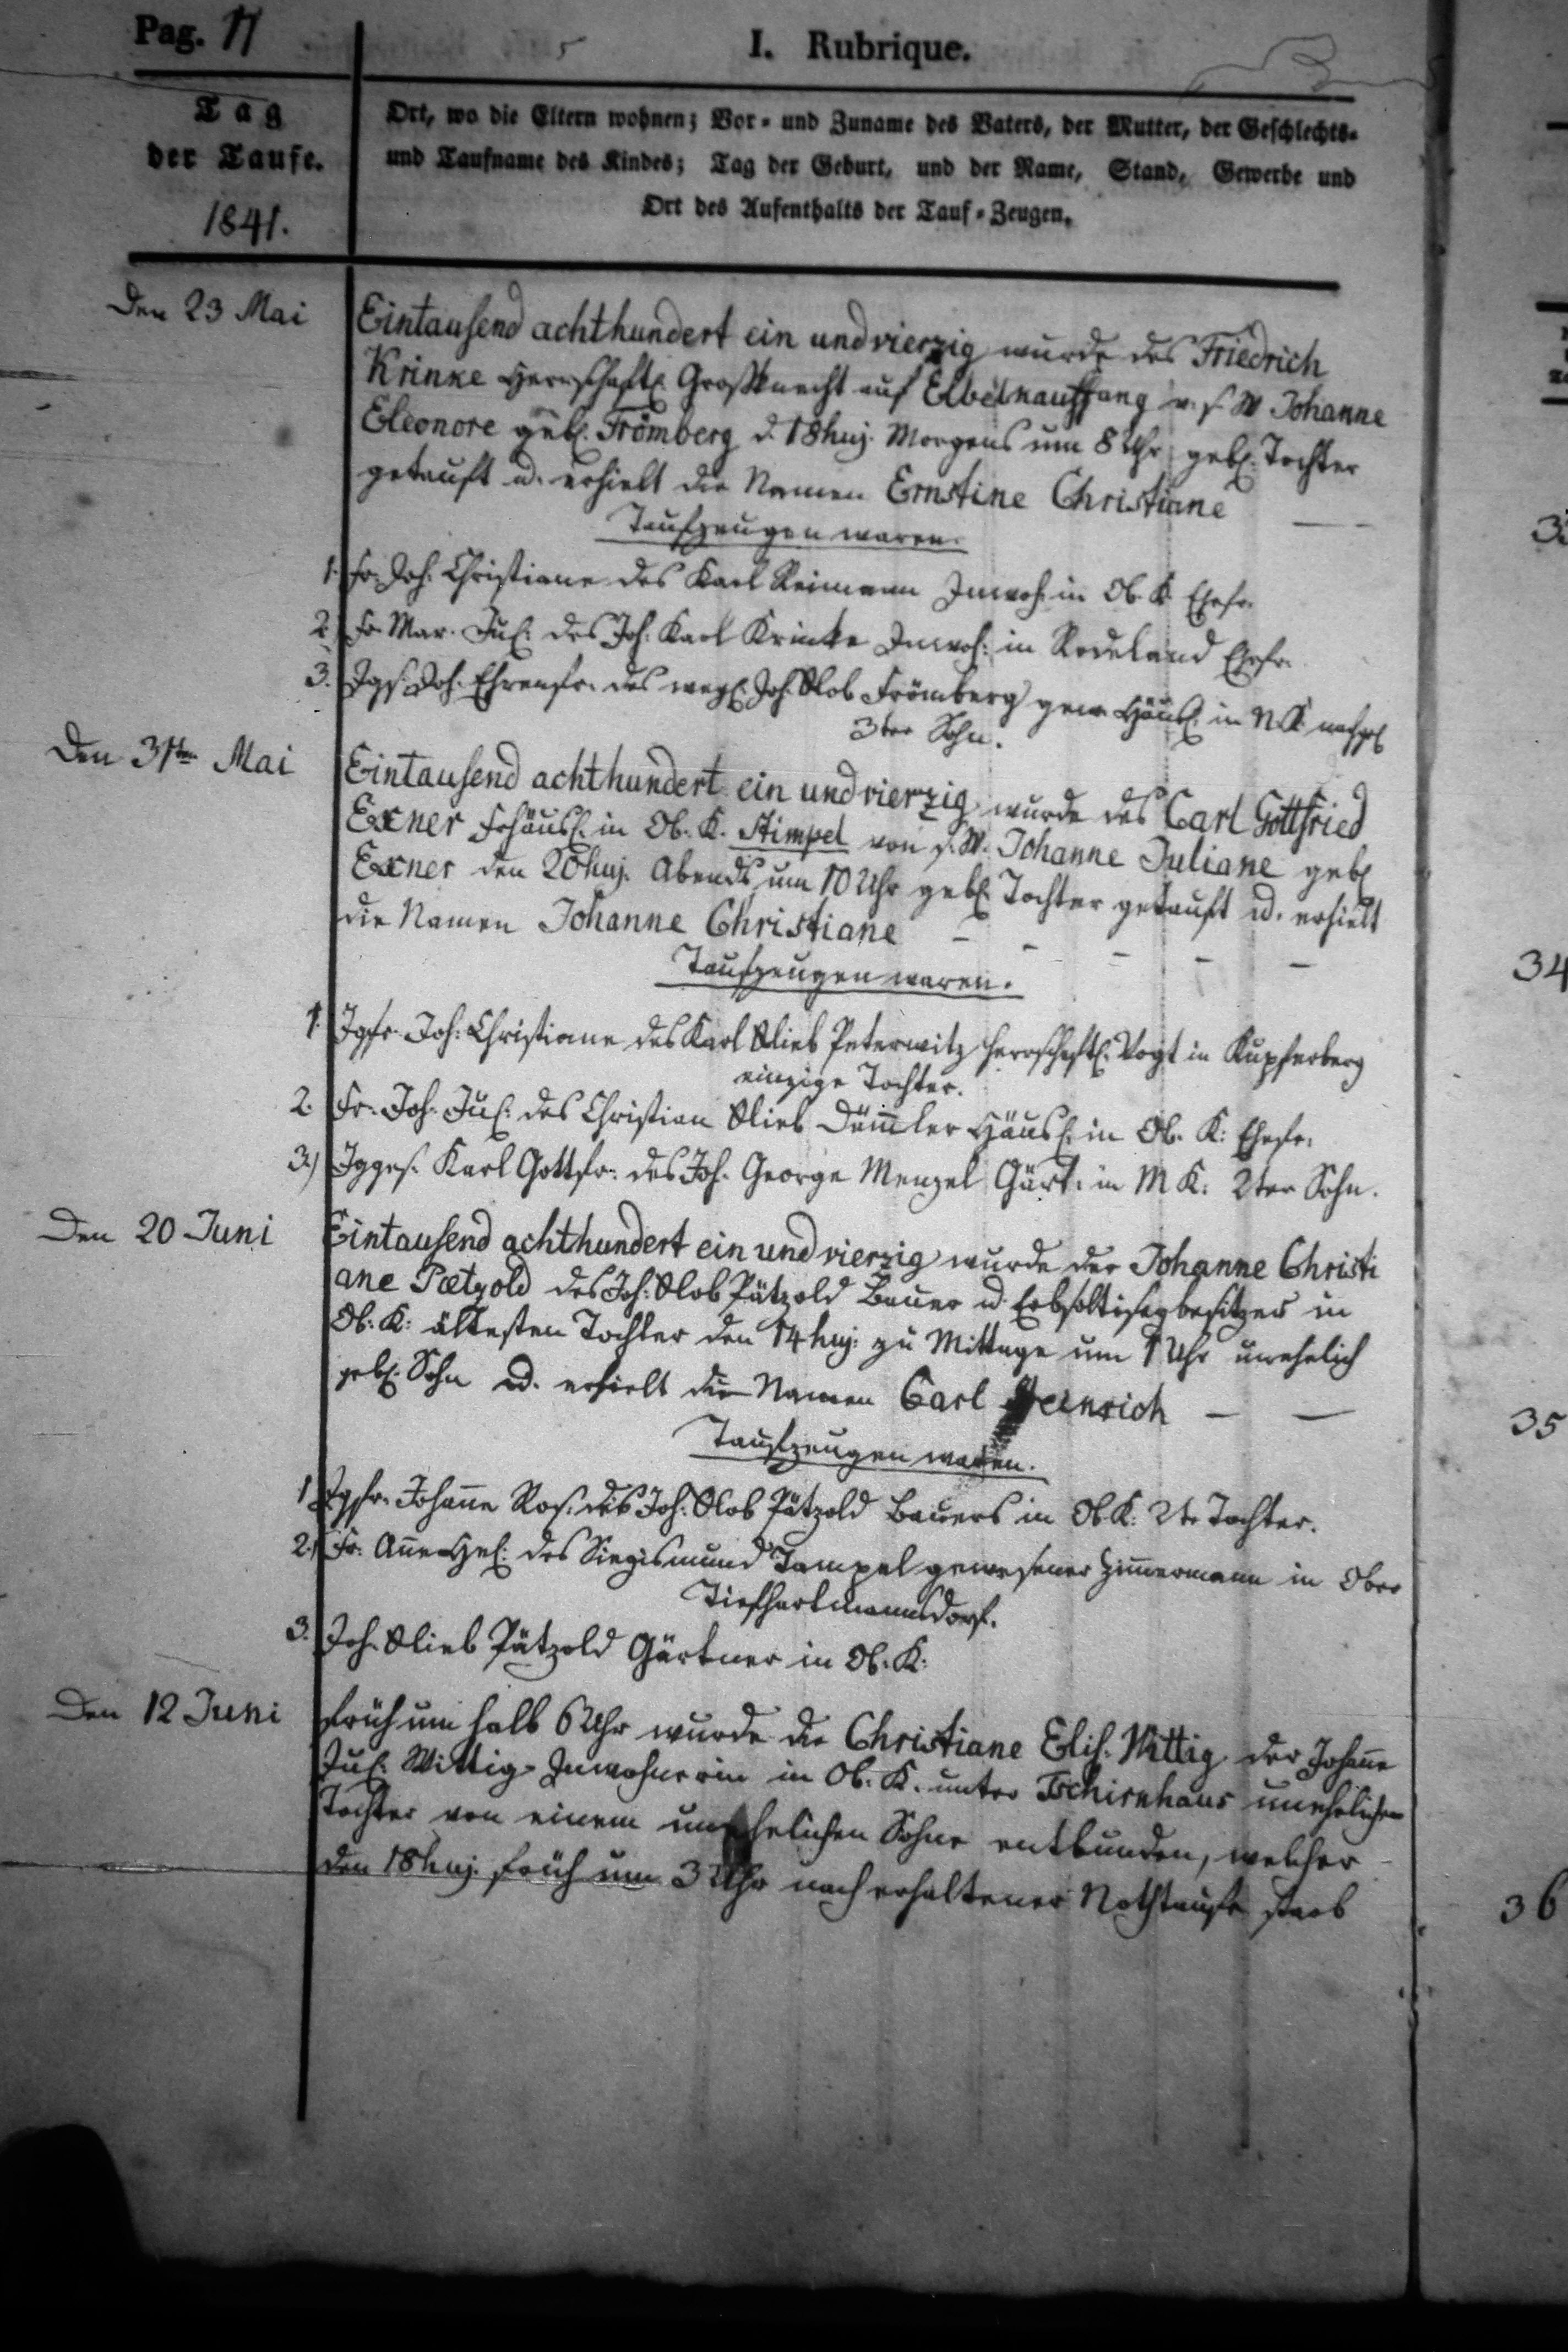 Pag. 11
I. Rubrique.
Tag
der Taufe.
1841.
Ort, wo die Eltern wohnen; Vor- und Zuname des Vaters, der Mutter, der Geschlechts-
und Taufname des Kindes; Tag der Geburt, und der Name, Stand, Gewerbe und
Ort des Aufenthalts der Tauf-Zeugen.
Den 23 Mai
Eintausend achthundert ein und vierzig wurde des Friedrich
Krinke Herrschaftl. Großknecht auf v. s. W Johanne
Eleonore gebl. Frömberg d. 18 huj. Morgens um 8 Uhr gebl. Tochter
getauft u. erhielt die Namen Ernstine Christiane
Taufzeugen waren.
1. Fr. Joh. Christiane des Karl Reimann Inwoh. in Ob. K. Ehefr.
2. Fr. Mar. Jul. des Joh. Karl Krinke Inwoh. in Rodeland Ehefr.
3. Jgs. Joh. Ehrenfr. des weyl. Joh. Glob Frömberg gew. Häusl. in N. K. nachgel
3ter Sohn.
Den 31ten Mai
Eintausend achthundert ein und vierzig wurde des Carl Gottfried
Exner Frhäusl. in Ob. K. Stimpel von s. W. Johanne Juliane gebl
Exner den 20 huj. Abends um 10 Uhr gebl. Tochter getauft u. erhielt
die Namen Johanne Christiane - - - - -
Taufzeugen waren.
1. Jgfr. Joh. Christiane des Karl Glieb Peterwitz herrschaftl. Vogt in Kupferberg
einzige Tochter.
2. Fr. Joh. Jul. des Christian Glieb Häusl. in Ob. K: Ehefr.
3.) Jgges. Karl Gottfr. des Joh. George Menzel Gärt. in M K: 2ter Sohn.
Den 20 Juni
Eintausend achthundert ein und vierzig wurde der Johanne Christi
ane Pætzold des Joh. Glob Pätzold Bauer u. in
Ob. K: ältesten Tochter den 14 huj. zu Mittage um 1 Uhr unehelich
gebl. Sohn u. erhielt die Namen Carl Heinrich — —
Taufzeugen waren.
1 Jgfr. Johañe Ros. des Joh. Glob Pätzold Bauers in Ob K: 2te Tochter.
2.) Fr. Añe Hel. des Siegismund Tampel gewesener Zim̃ermann in Ober
Tiefhartmannsdorf.
3. Joh. Glieb Pätzold Gärtner in Ob. K:
Den 12 Juni
früh um halb 6 Uhr wurde die Christiane Elis. Wittig der Johañe
Jul. Wittig Inwohnerin in Ob. K. unter Tschirnhaus unehelichen
Tochter von einem unehelichen Sohne entbunden, welcher
den 18 huj. früh um 3 Uhr nach erhaltener Nothtaufe starb
34
35
36